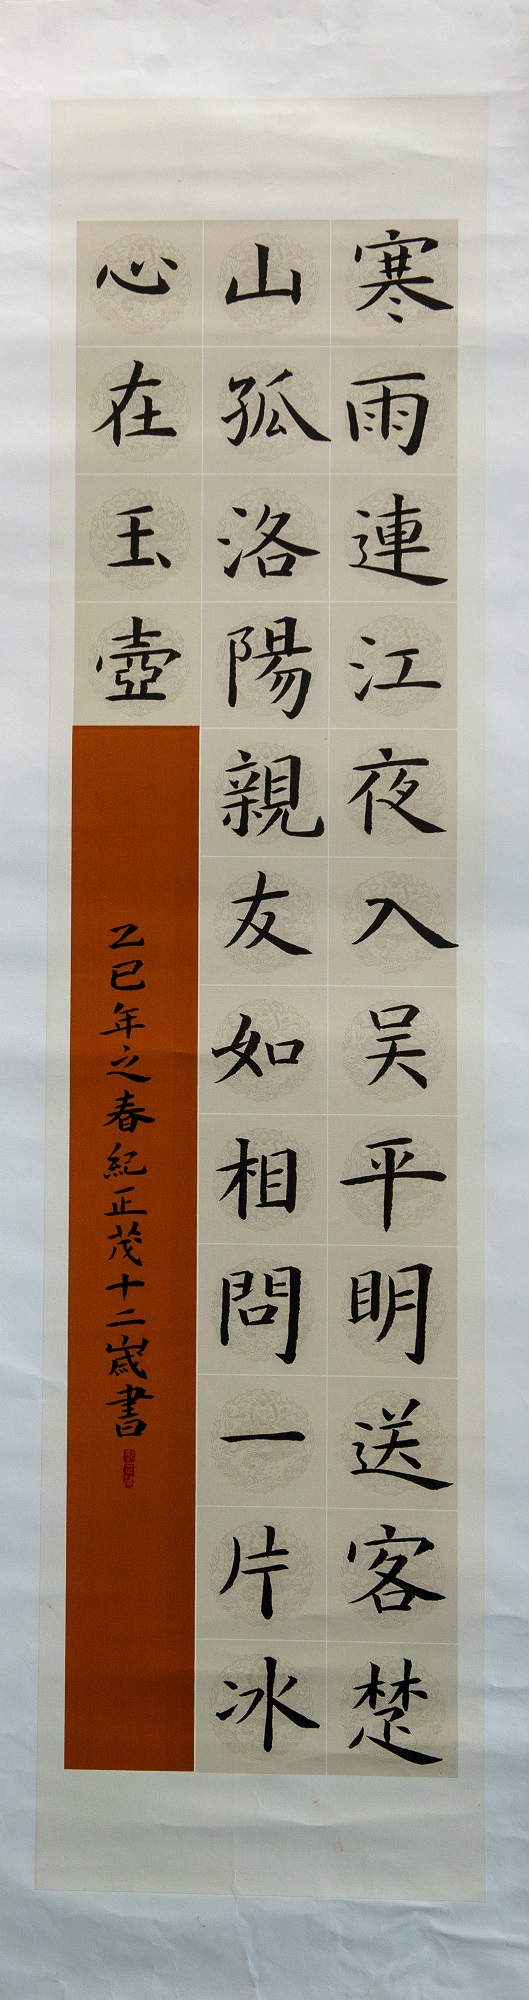 寒雨連江夜入吴平明送客楚
山孤洛陽親友如相問一片冰
心在玉壺
乙巳年之春紀正茂十二歲書